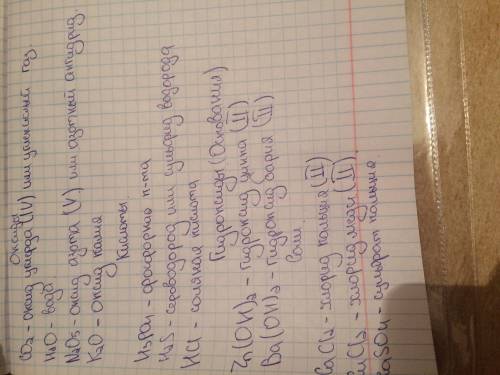 Оксиды
CO2 - оксид углерода (IV) или углекислый газ
H2O - вода
N2O5 - оксид азота (V) или азотный ангидрид.
K2O - оксид калия
Кислоты.
H3PO4 - фосфорная к-та
H2S - сероводород или сульфид водорода
HCl - соляная кислота
Гидроксиды (Основания)
Zn(OH)2 - Гидроксид цинка (II)
Ba(OH)2 - Гидроксид бария (II)
Соли.
CaCl2 - хлорид кальция (II)
CuCl2 - хлорид меди (II).
CaSO4 - сульфат кальция